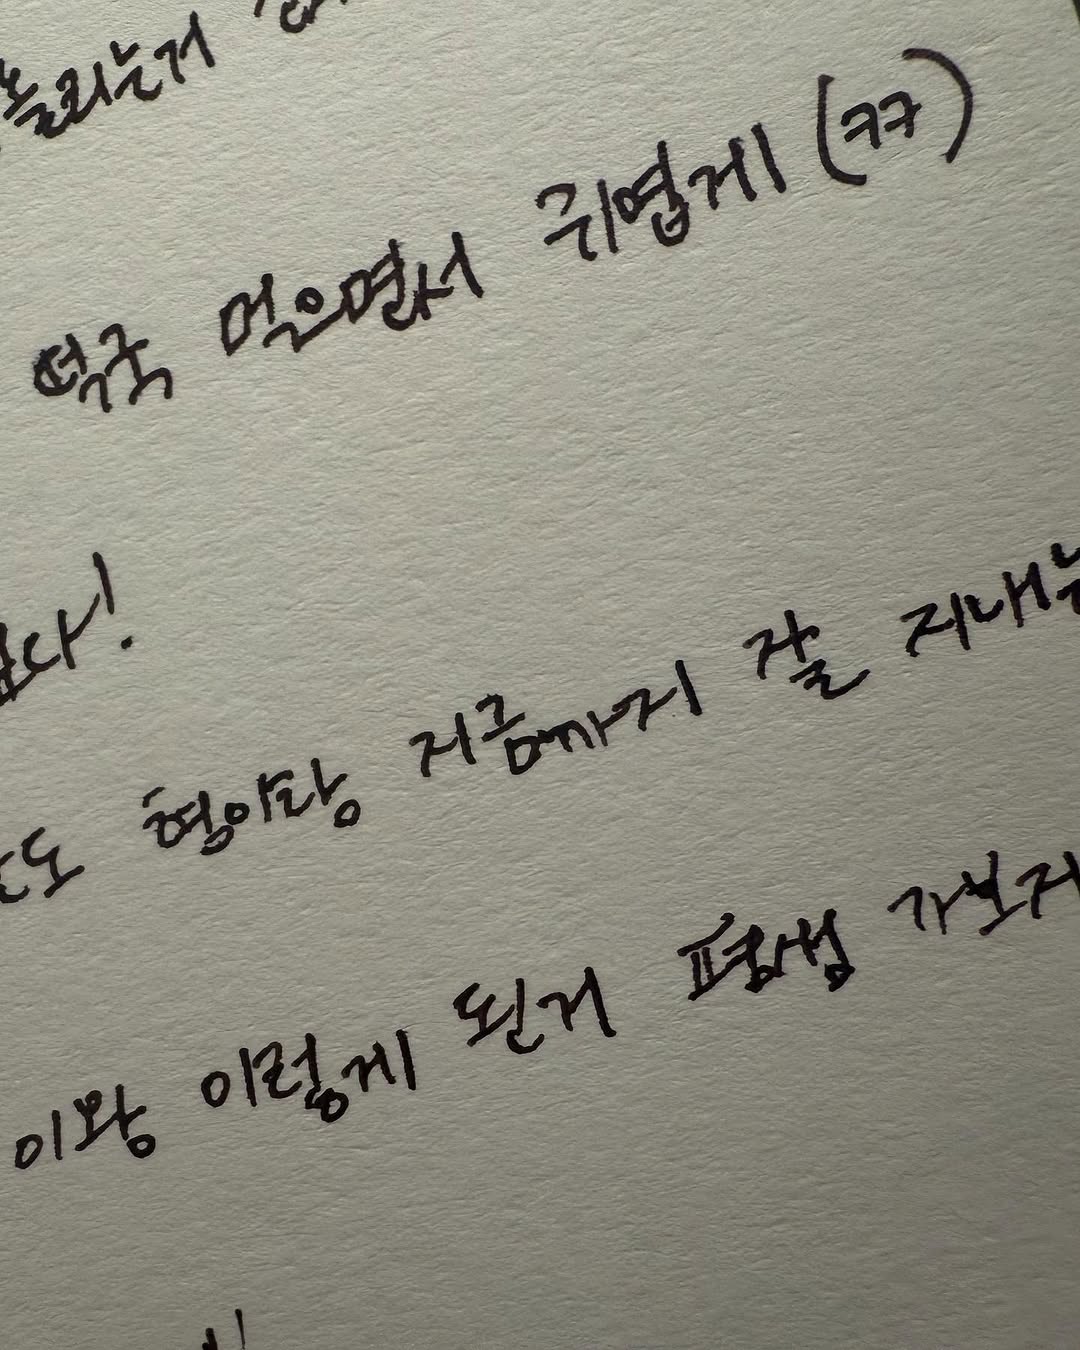 놀리는거
떡국 먹으면서 귀엽게 (ㅋㅋ)
다!
도 형아랑 지금까지 잘 지내는
이왕 이렇게 된거 평생 가보자